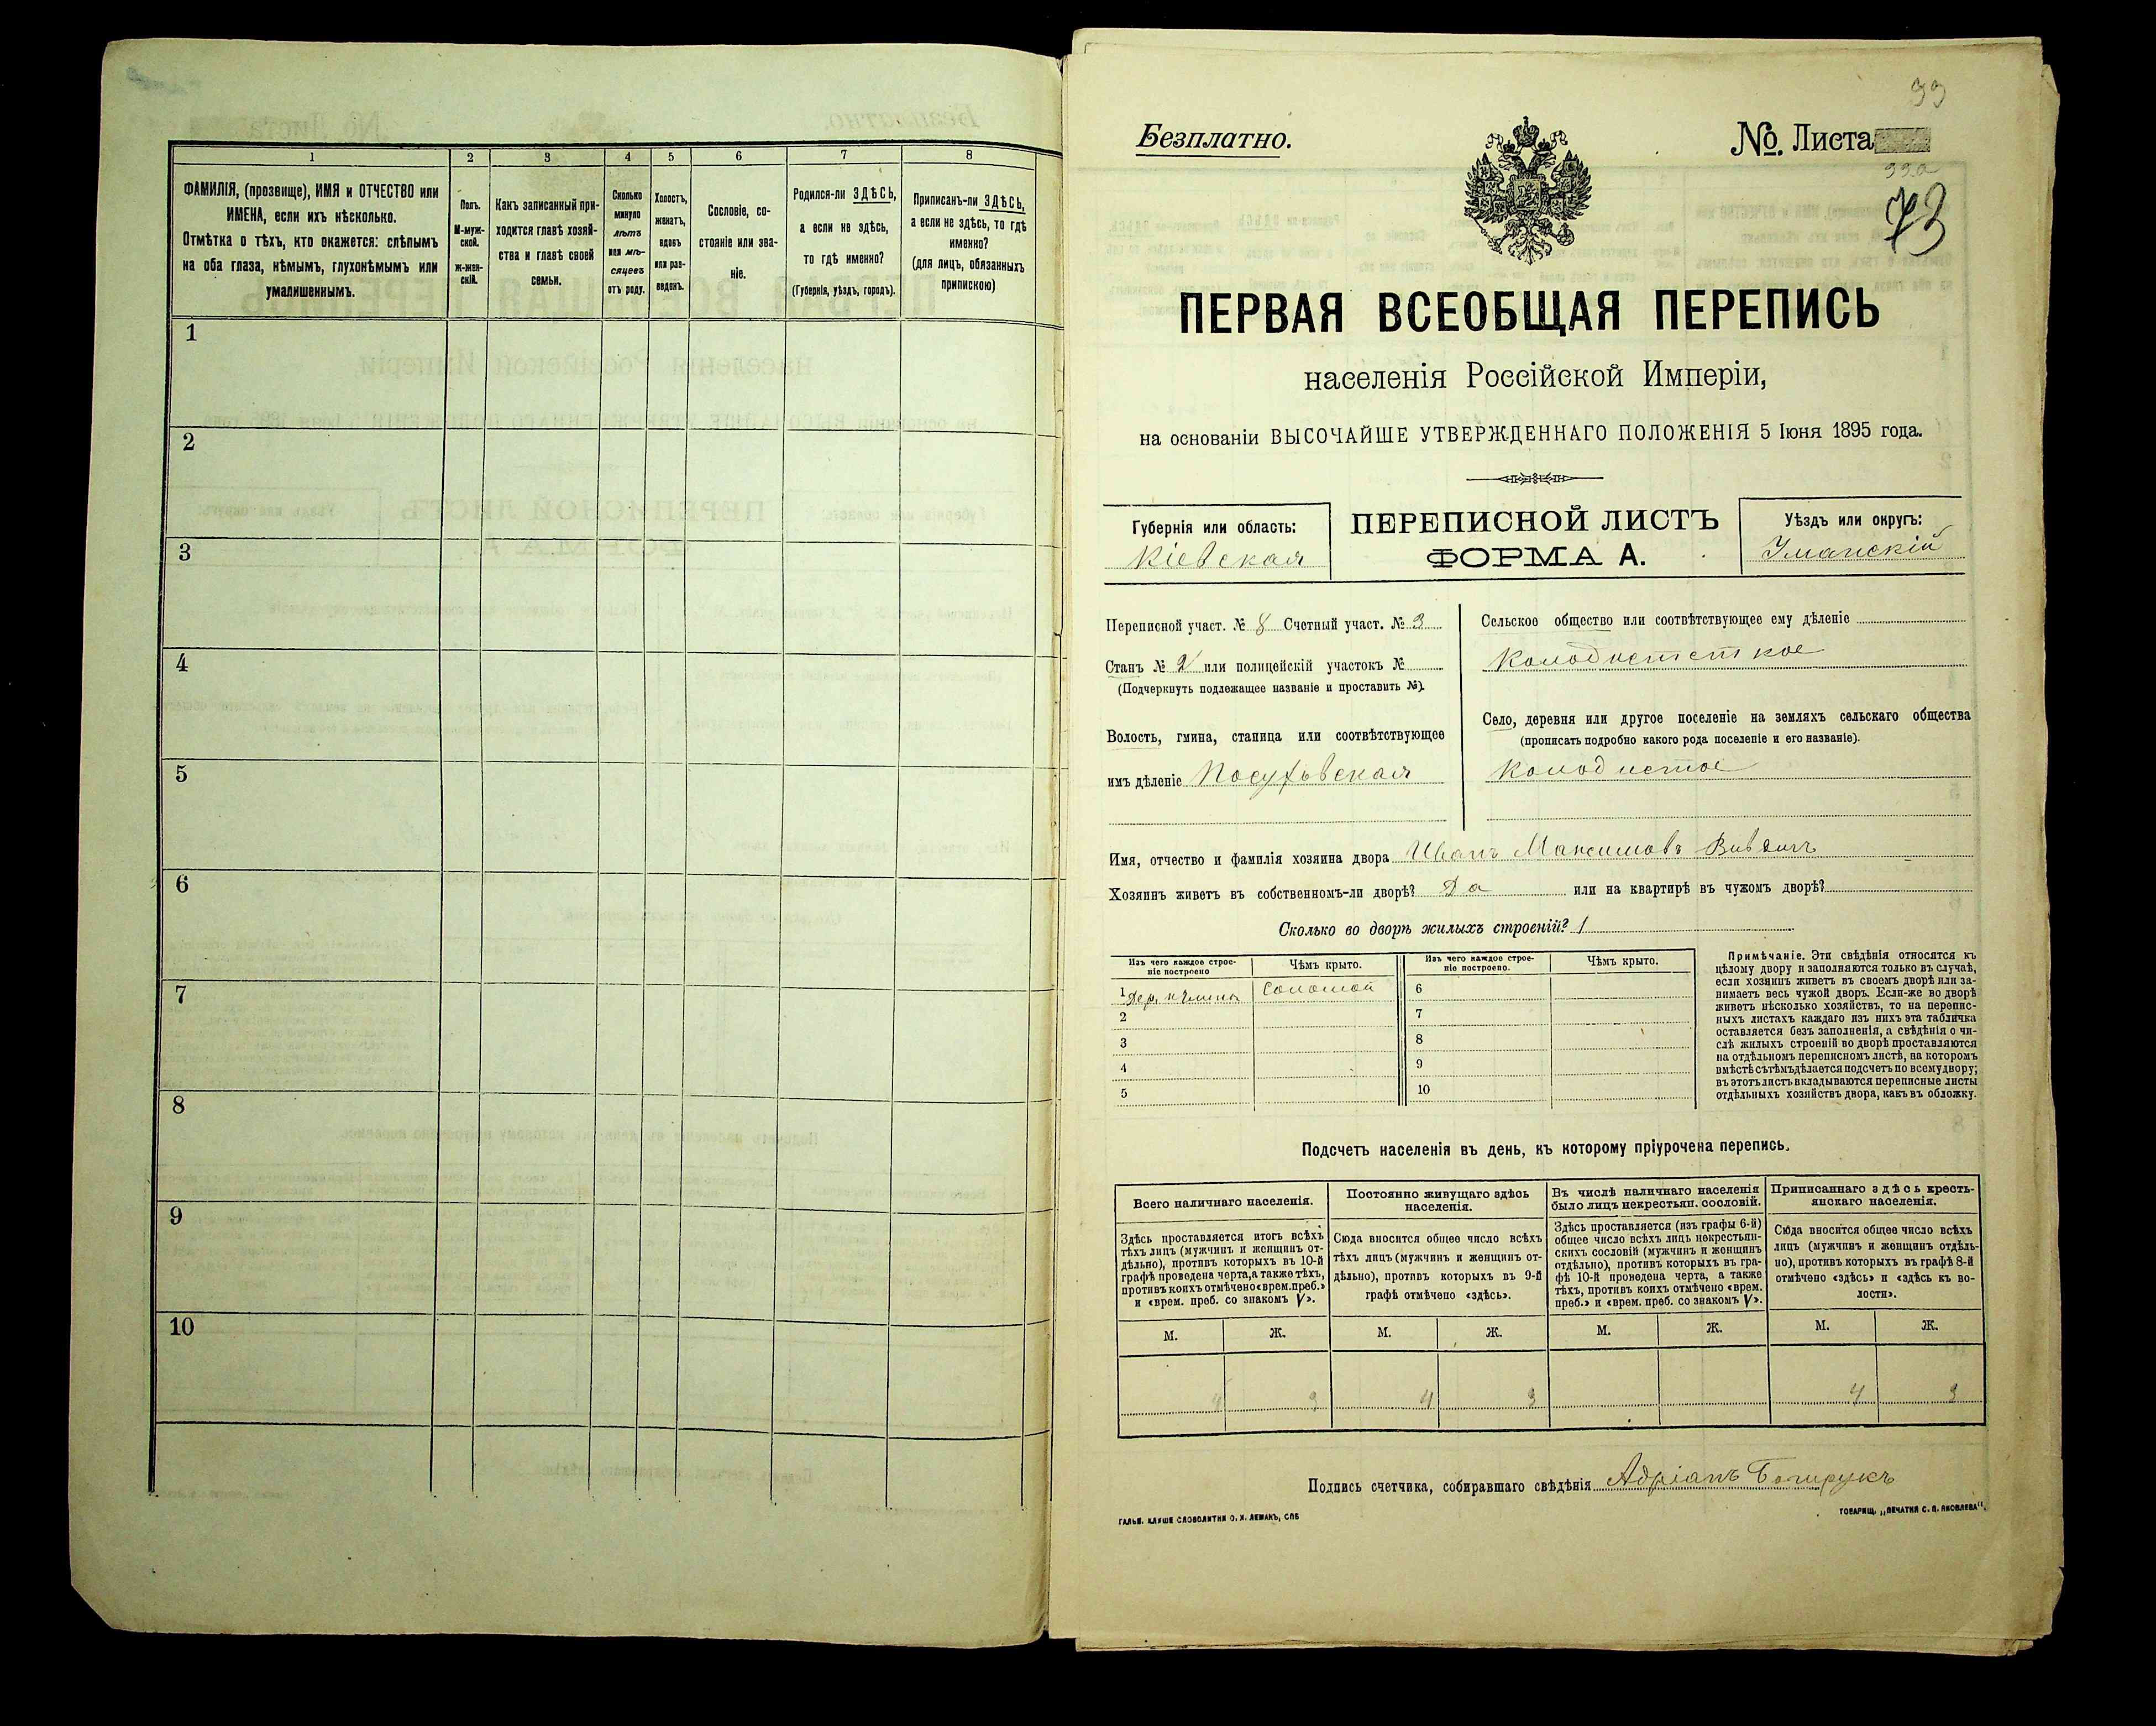 1
2
3
4
5
6
7
8
ФАМИЛІЯ, (прозвище), ИМЯ и ОТЧЕСТВО или
ИМЕНА, если ихъ нѣсколько.
Отмѣтка о тѣхъ, кто окажется: слѣпымъ
на оба глаза, нѣмымъ, глухонѣмымъ или
умалишеннымъ.
Полъ.
М-муж-
ской.
Ж-жен-
скій.
Какъ записанный при-
ходится главѣ хозяй-
ства и главѣ своей
семьи.
Сколько
минуло
лѣтъ
или мѣ-
сяцевъ
отъ роду.
Холостъ,
женатъ,
вдовъ
или раз-
веденъ.
Сословіе, со-
стояніе или зва-
ніе.
Родился-ли ЗДѢСЬ,
а если не здѣсь,
то гдѣ именно?
(Губернія, уѣздъ, городъ).
Приписанъ-ли ЗДѢСЬ,
а если не здѣсь, то гдѣ
именно?
(для лицъ, обязанныхъ
припискою)
1
2
3
4
5
6
7
8
9
10
Безплатно.
№ Листа
33а
73
ПЕРВАЯ ВСЕОБЩАЯ ПЕРЕПИСЬ
населенія Россійской Имперіи,
на основаніи ВЫСОЧАЙШЕ УТВЕРЖДЕННАГО ПОЛОЖЕНІЯ 5 Іюня 1895 года.
Губернія или область:
Кіевская
ПЕРЕПИСНОЙ ЛИСТЪ
ФОРМА А.
Уѣздъ или округъ:
Уманскій
Переписной участ. № 8 Счетный участ. № 3
Станъ № 2 или полицейскій участокъ №
(Подчеркнуть подлежащее названіе и проставить №).
Волость, гмина, станица или соотвѣтствующее
имъ дѣленіе Посуховская
Сельское общество или соотвѣтствующее ему дѣленіе
Колодистсткое
Село, деревня или другое поселеніе на земляхъ сельскаго общества
(прописать подробно какого рода поселеніе и его названіе).
Колодистое
Имя, отчество и фамилія хозяина двора Иванъ Максимовъ
Хозяинъ живетъ въ собственномъ-ли дворѣ? Да или на квартирѣ въ чужомъ дворѣ?
Сколько во дворѣ жилыхъ строеній? 1
Изъ чего каждое строе-
ніе построено
Чѣмъ крыто.
Изъ чего каждое строе-
ніе построено.
Чѣмъ крыто.
1 Дер. и глины Соломой
2
3
4
5
6
7
8
9
10
Примѣчаніе. Эти свѣдѣнія относятся къ
цѣлому двору и заполняются только въ случаѣ,
если хозяинъ живетъ въ своемъ дворѣ или за-
нимаетъ весь чужой дворъ. Если-же во дворѣ
живетъ нѣсколько хозяйствъ, то на перепис-
ныхъ листахъ каждаго изъ нихъ эта табличка
оставляется безъ заполненія, а свѣдѣнія о чи-
слѣ жилыхъ строеній во дворѣ проставляются
на отдѣльномъ переписномъ листѣ, на которомъ
вмѣстѣ съ тѣмъ дѣлается подсчетъ по всему двору;
въ этотъ листъ вкладываются переписные листы
отдѣльныхъ хозяйствъ двора, какъ въ обложку.
Подсчетъ населенія въ день, къ которому пріурочена перепись.
Всего наличнаго населенія.
Постоянно живущаго здѣсь
населенія.
Въ числѣ наличнаго населенія
было лицъ некрестьян. сословій.
Приписаннаго здѣсь кресть-
янскаго населенія.
Здѣсь проставляется итогъ всѣхъ
тѣхъ лицъ (мужчинъ и женщинъ от-
дѣльно), противъ которыхъ въ 10-й
графѣ проведена черта, а также тѣхъ,
противъ коихъ отмѣчено «врем. преб.»
и «врем. преб. со знакомъ V».
Сюда вносится общее число всѣхъ
тѣхъ лицъ (мужчинъ и женщинъ от-
дѣльно), противъ которыхъ въ 9-й
графѣ отмѣчено «здѣсь».
Здѣсь проставляется (изъ графы 6-й)
общее число всѣхъ лицъ некрестьян-
скихъ сословій (мужчинъ и женщинъ
отдѣльно), противъ которыхъ въ гра-
фѣ 10-й проведена черта, а также
тѣхъ, противъ коихъ отмѣчено «врем.
преб.» и «врем. преб. со знакомъ V».
Сюда вносится общее число всѣхъ
лицъ (мужчинъ и женщинъ отдѣль-
но), противъ которыхъ въ графѣ 8-й
отмѣчено «здѣсь» и «здѣсь къ во-
лости».
М. Ж. М. Ж. М. Ж. М. Ж.
4 3 4 3 4 3
Подпись счетчика, собиравшаго свѣдѣнія Адріанъ
ГАЛЬВ. КЛИШЕ СЛОВОЛИТНИ О. И. ЛЕМАНЪ, СПБ
ТОВАРИЩ. „ПЕЧАТНЯ С. П. ЯКОВЛЕВА“.